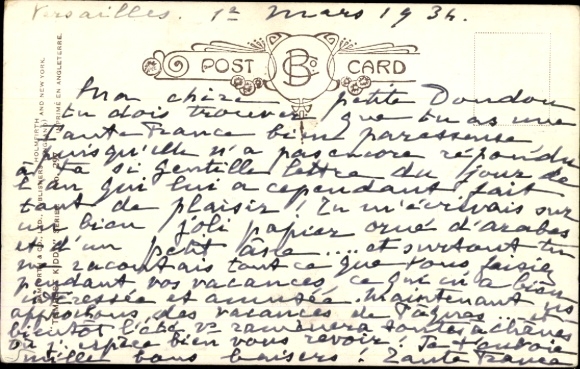 Versailles. 1er Mars 1934.
POST CARD
B Co
Ma chère petite Doudou
tu dois trouver que tu as une
Tante France bien paresseuse
puisqu'elle n'a pas encore répondu
à ta si gentille lettre du jour de
l'an qui lui a cependant fait
tant de plaisir! Tu m'écrivais sur
un bien joli papier orné d'arabes
et d'un petit âne .... et surtout tu
me racontais tout ce que vous faisiez
pendant vos vacances, ce qui m'a bien
intéressée et amusée. Maintenant ns
approchons des vacances de Pâques ... et
bientôt l'été vs ramènera toutes à
où j'espère bien vous revoir! Je t'envoie
mille bons baisers! Tante France
BAMFORTH & CO., LTD., PUBLISHERS, HOLMFIRTH (ENGLAND) AND NEW YORK.
KIDDY" SERIES IMPRIMÉ EN ANGLETERRE.